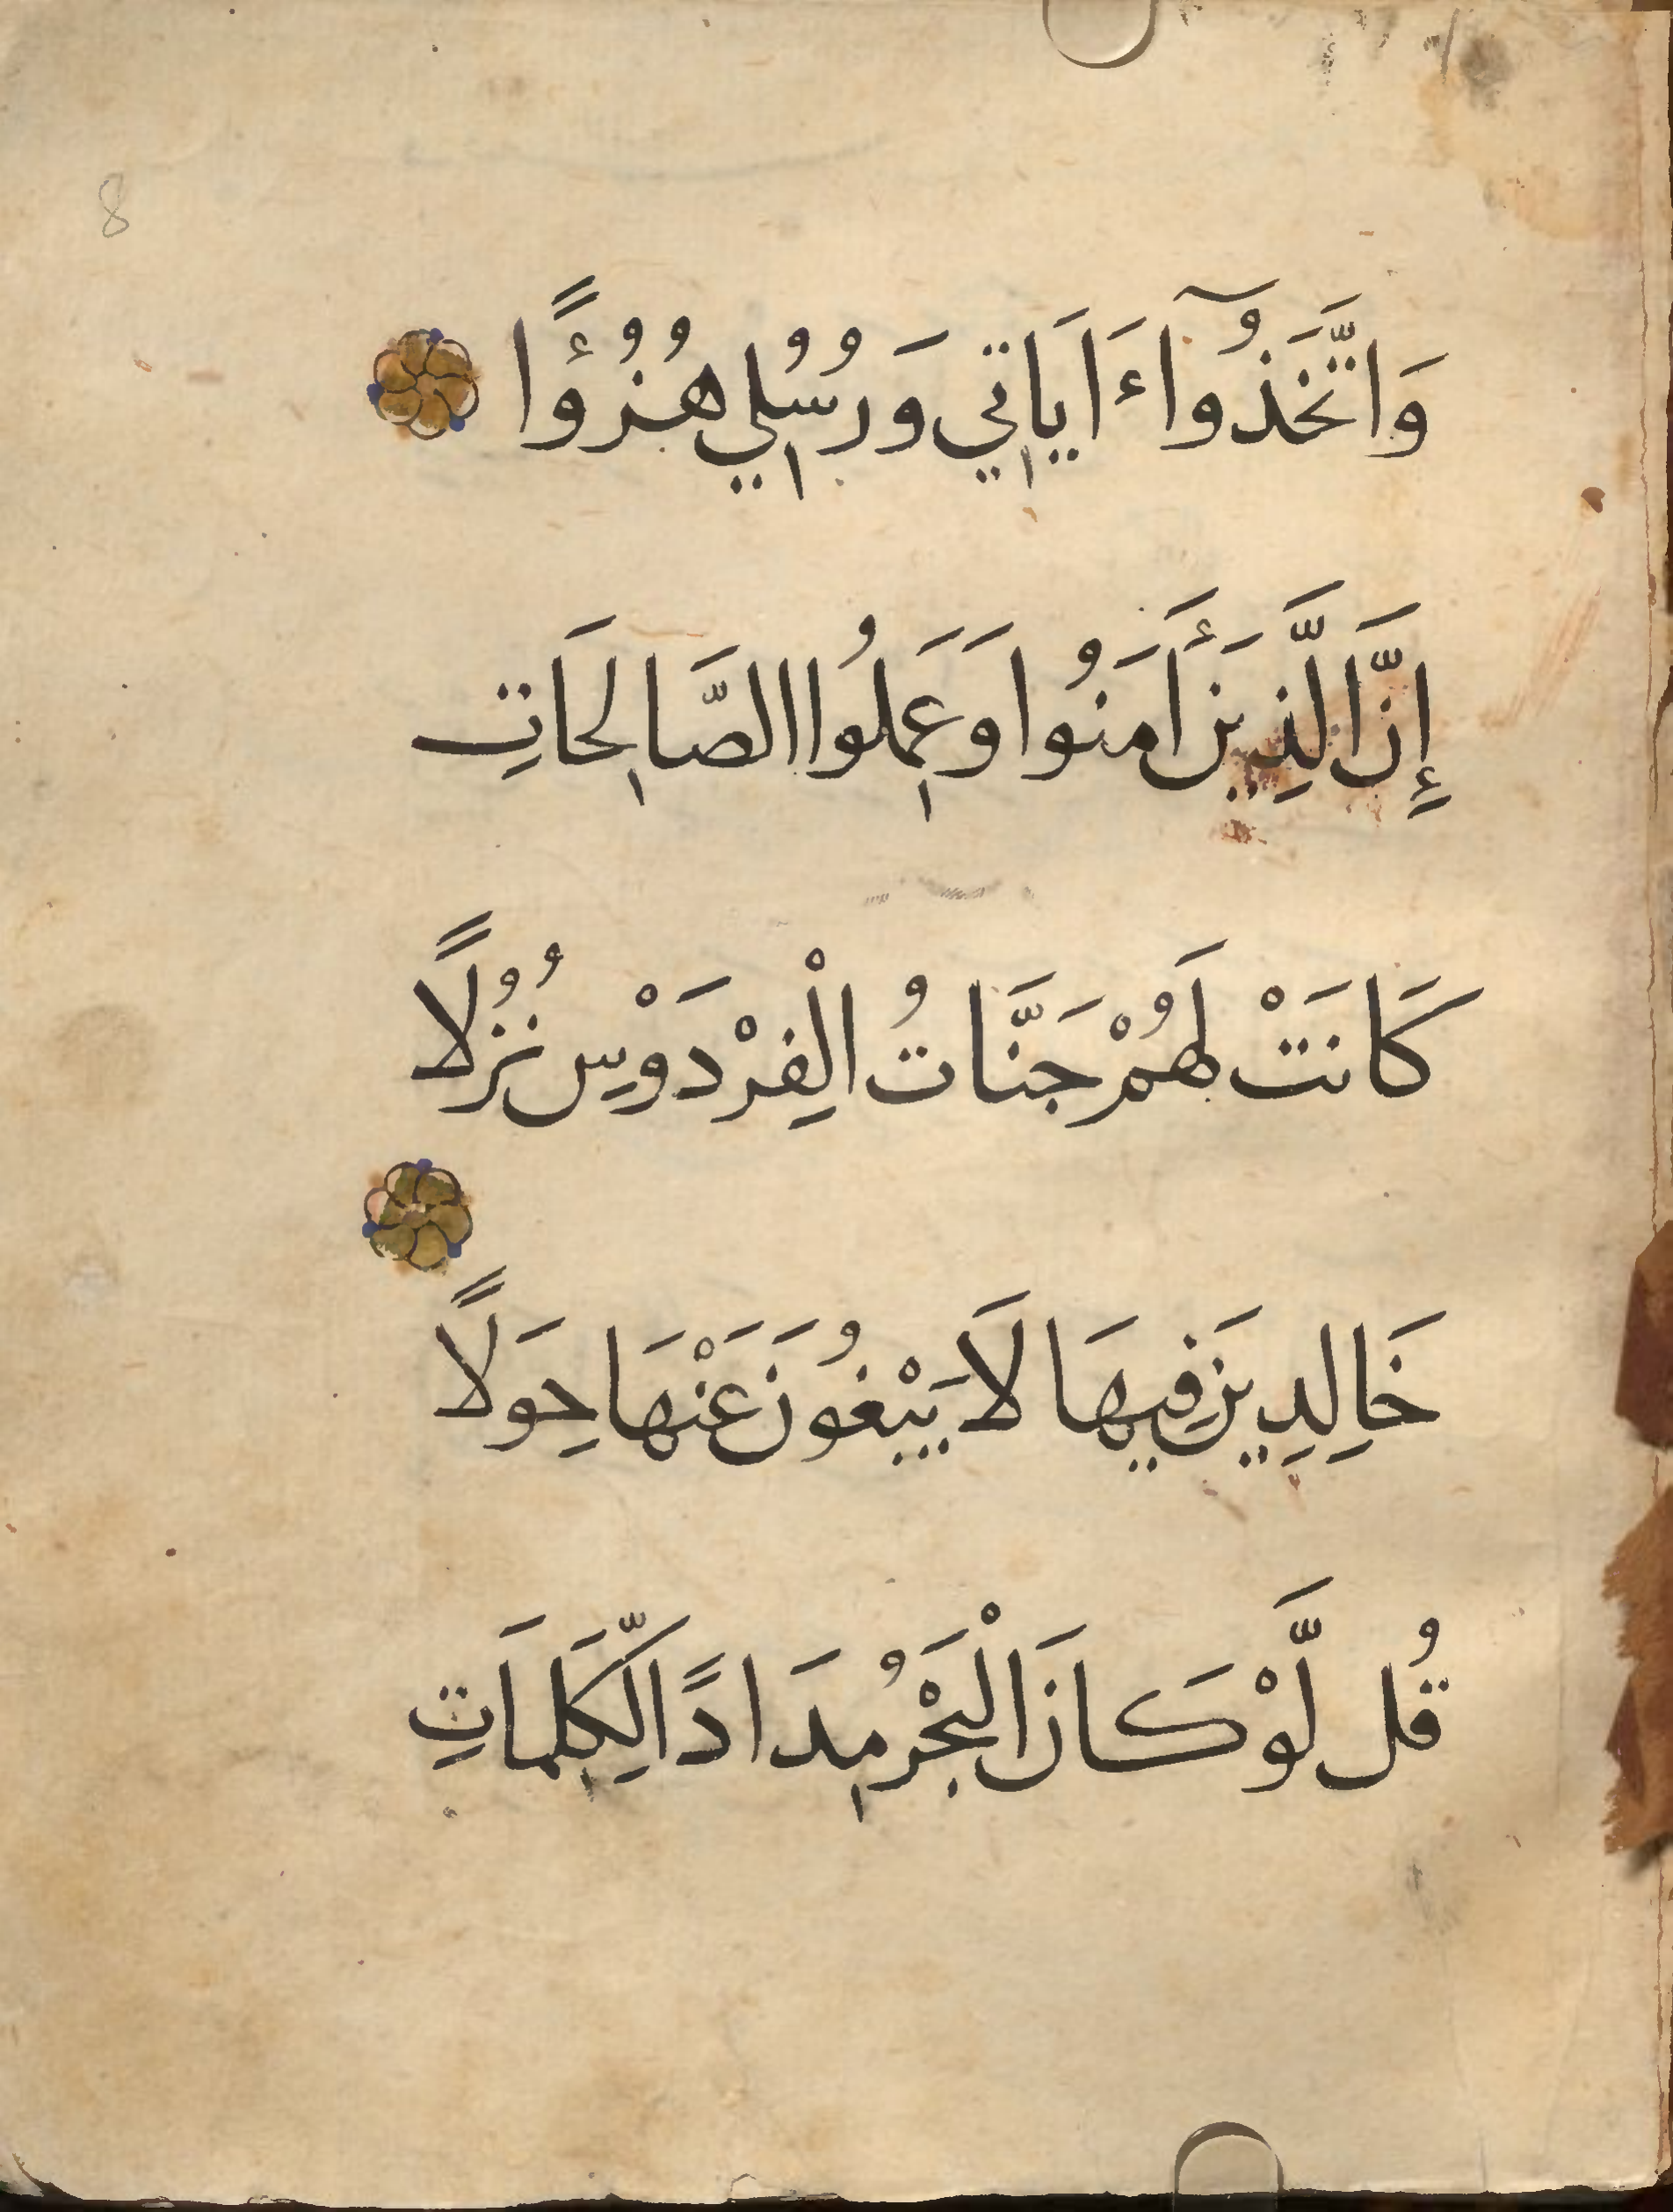 8
وَاتَّخَذُوٓا ءَايَاتِي وَرُسُلِي هُزُؤًا
إِنَّ الَّذِينَ أَمَنُوا وَعَمِلُوا الصَّالِحَاتِ
كَانَتْ لَهُمْ جَنَّاتُ الْفِرْدَوْسِ نُزُلًا
خَالِدِينَ فِيهَا لَا يَبْغُونَ عَنْهَا حِوَلًا
قُل لَّوْ كَانَ الْبَحْرُ مِدَادًا لِّكَلِمَاتِ